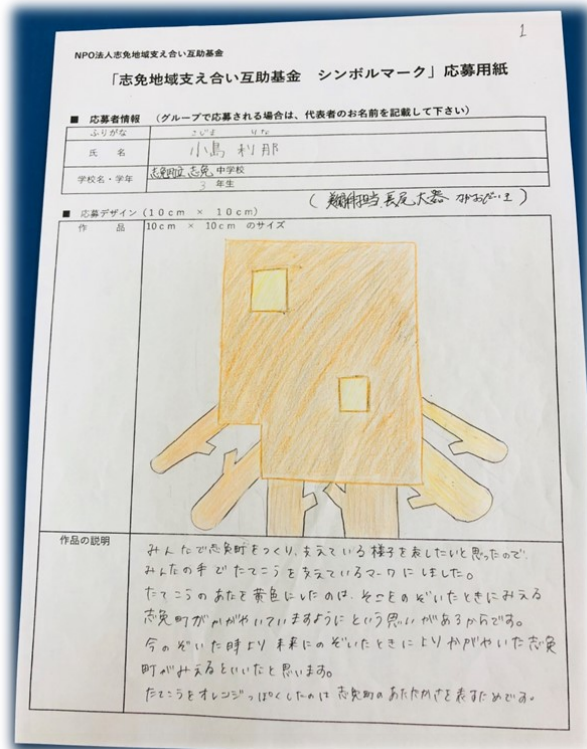 1
NPO法人志免地域支え合い互助基金
「志免地域支え合い互助基金 シンボルマーク」応募用紙
■ 応募者情報 (グループで応募される場合は、代表者のお名前を記載して下さい)
ふりがな こじま りな
氏 名 小島 利那
学校名・学年 志免町立 志免 中学校
3 年生
(美術科担当 長尾 大器
■ 応募デザイン (10cm × 10cm)
作 品 10cm × 10cm のサイズ
作品の説明
みんなで志免町をつくり、支えている様子を表したいと思ったので、
みんなの手でたてこうを支えているマークにしました。
たてこうのあなを黄色にしたのは、そこをのぞいたときにみえる
志免町がかがやいていますようにという思いがあるからです。
今のぞいた時より未来にのぞいたときによりかがやいた志免
町がみえるといいなと思います。
たてこうをオレンジっぽくしたのは志免町のあたたかさを表すためです。